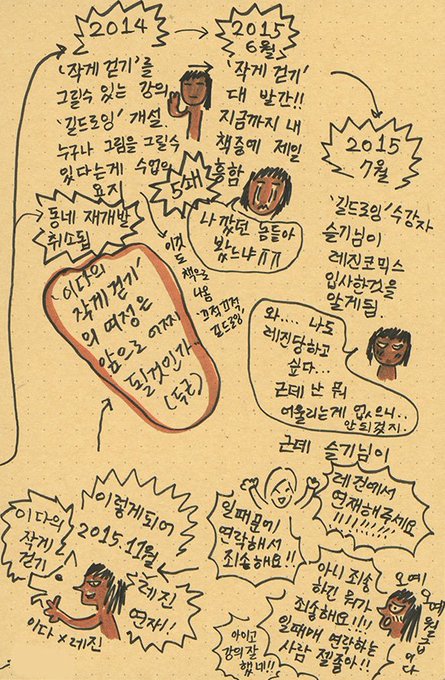 2014
'작게 걷기'를
그릴수 있는 강의
'길드로잉' 개설.
누구나 그림을 그릴수
있다는게 수업의
요지
2015
6월
'작게 걷기'
대 발간!!
지금까지 내
책중에 제일
흥함
5쇄
나 깠던 놈들아
봤느냐 ㅠㅠ
2015
7월
'길드로잉' 수강자
슬기님이
레진코믹스
입사한것을
알게됨.
와.... 나도
레진당하고
싶다...
근데 난 뭐
어울리는게 없으니..
안되겠지.
동네 재개발
취소됨
이것
도
책으로
나옴
끄적끄적
길드로잉
'이다의
작게 걷기'
의 여정은
앞으로 어찌
될것인가..
(두근)
근데 슬기님이
레진에서
연재해주세요
!!!!!!!!!
일때문에
연락해서
죄송해요!!
아니 죄송
하긴 뭐가
죄송해요!!!!
일때매 연락하는
사람 젤좋아!!
오예
오예
월드컵이다
아이고
강의잘
했네!!
이렇게되어
2015.11월
이다의
작게
걷기
레진
연재!
이다×레진